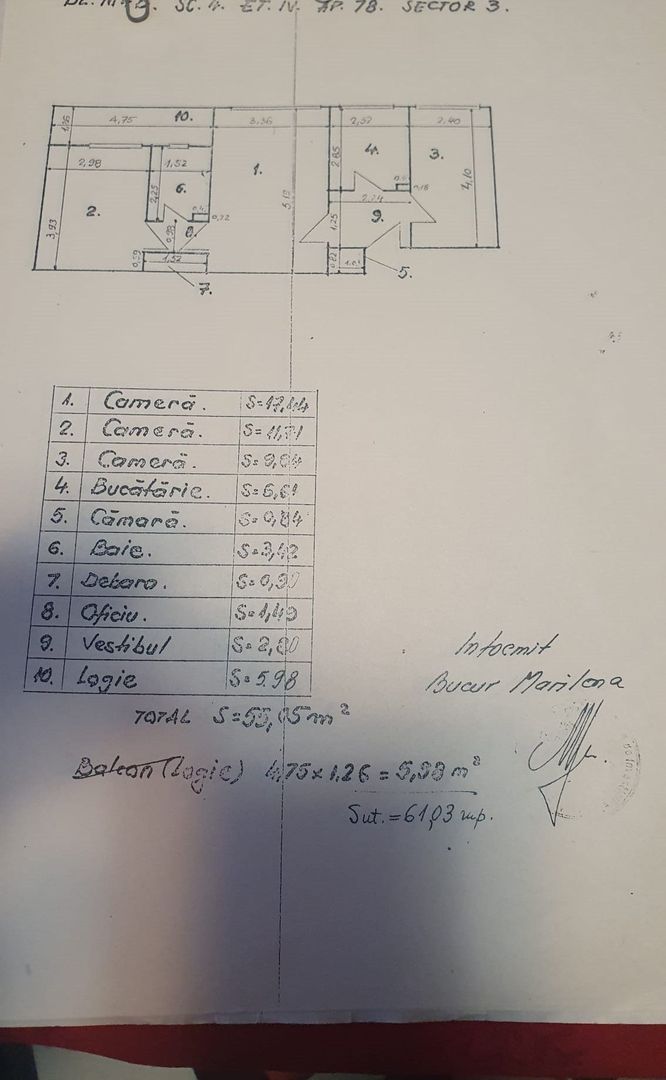 SC. 4. ET. IV. AP. 78. SECTOR 3.
4,75 10. 3,36 2,52 2,40
2,98 1,52 1. 2,65 4. 3.
2. 2,25 6. 5,19 2,74 0,18 4,10
3,93 0,98 8. 0,72 1,25 9.
1,52 5.
7.
1. Cameră. S=17,44
2. Cameră. S=11,71
3. Cameră. S=9,84
4. Bucătărie. S=6,61
5. Cămară. S=0,84
6. Baie. S=3,42
7. Debara. S=0,90
8. Oficiu. S=1,49
9. Vestibul S=2,80
10. Logie S=5.98
TOTAL S=55,05m²
Balcon (Logie) 4,75x1.26=5,98 m²
Sut.=61,03 mp.
Intocmit
Bucur Marilena